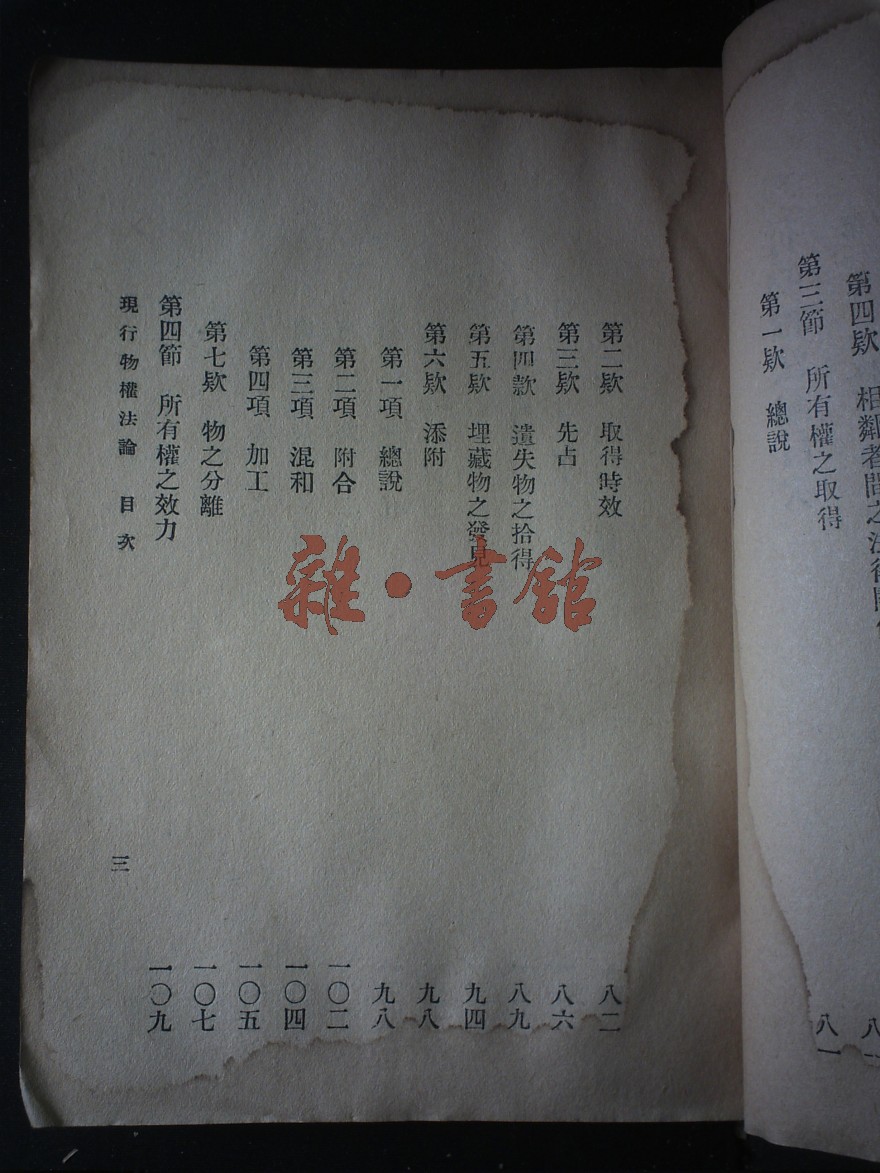 第四欵 相鄰者間之法律關
第三節 所有權之取得
八一
第一欵 總說
第二欵 取得時效 八二
第三欵 先占 八六
第四款 遺失物之拾得 八九
第五欵 埋藏物之發見 九四
第六欵 添附 九八
第一項 總說 九八
第二項 附合 一〇二
第三項 混和 一〇四
第四項 加工 一〇五
第七欵 物之分離 一〇七
第四節 所有權之效力 一〇九
現行物權法論 目次 三
雜·書館